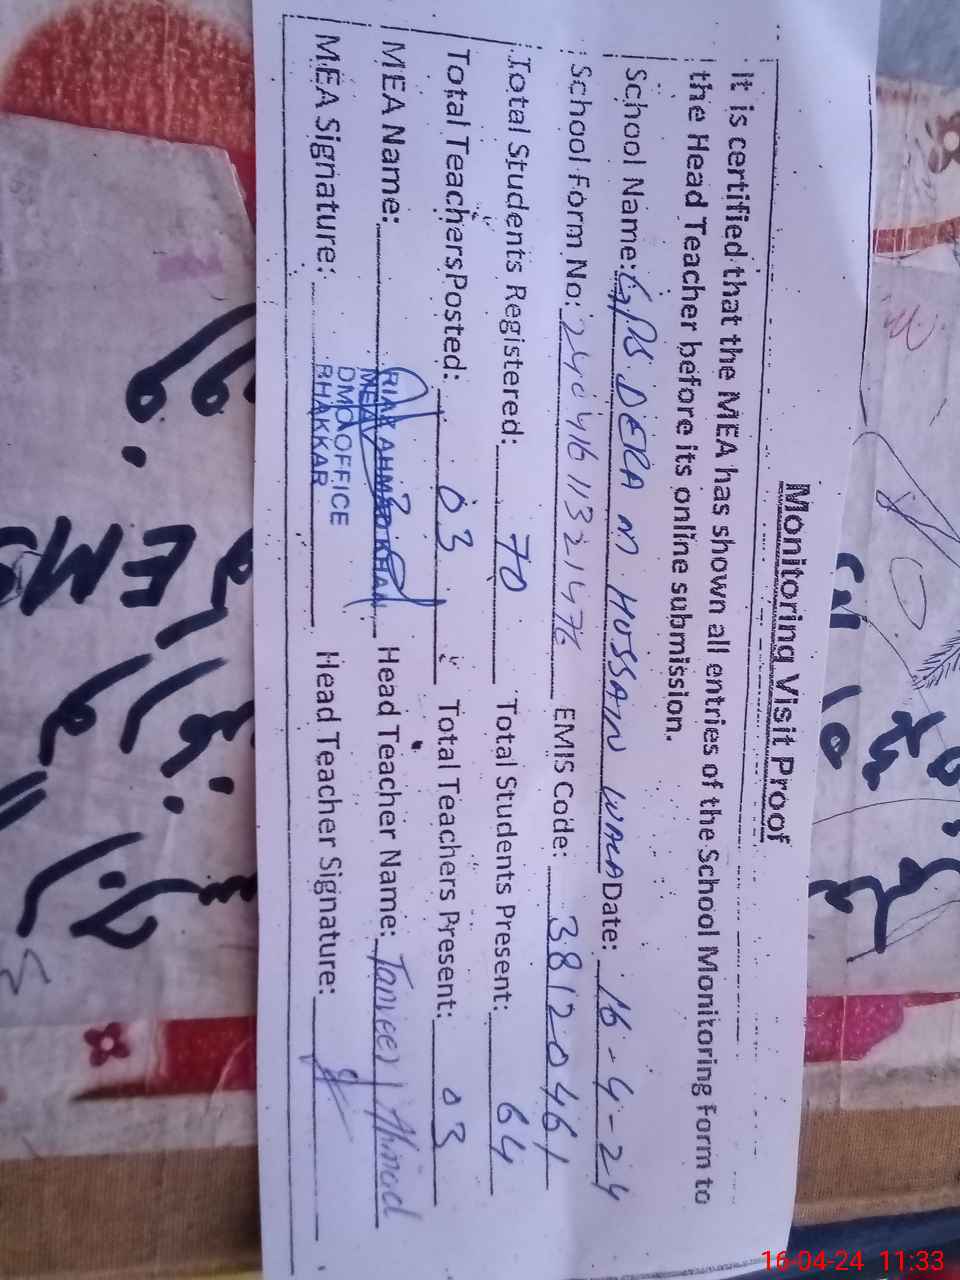 Monitoring Visit Proof
It is certified that the MEA has shown all entries of the School Monitoring Form to
the Head Teacher before its online submission.
School Name: GPS DERA M HUSSAIN WALA Date: 16-4-24
School Form No: 24041611321476 EMIS Code: 38120461
Total Students Registered: 70 Total Students Present: 64
Total Teachers Posted: 03 Total Teachers Present: 03
MEA Name: RIAZ AHMAD KHAN Head Teacher Name: Tanveer Ahmad
MEA
MEA Signature: DMO OFFICE Head Teacher Signature:
BHAKKAR
EMIS
16-04-24 11:33